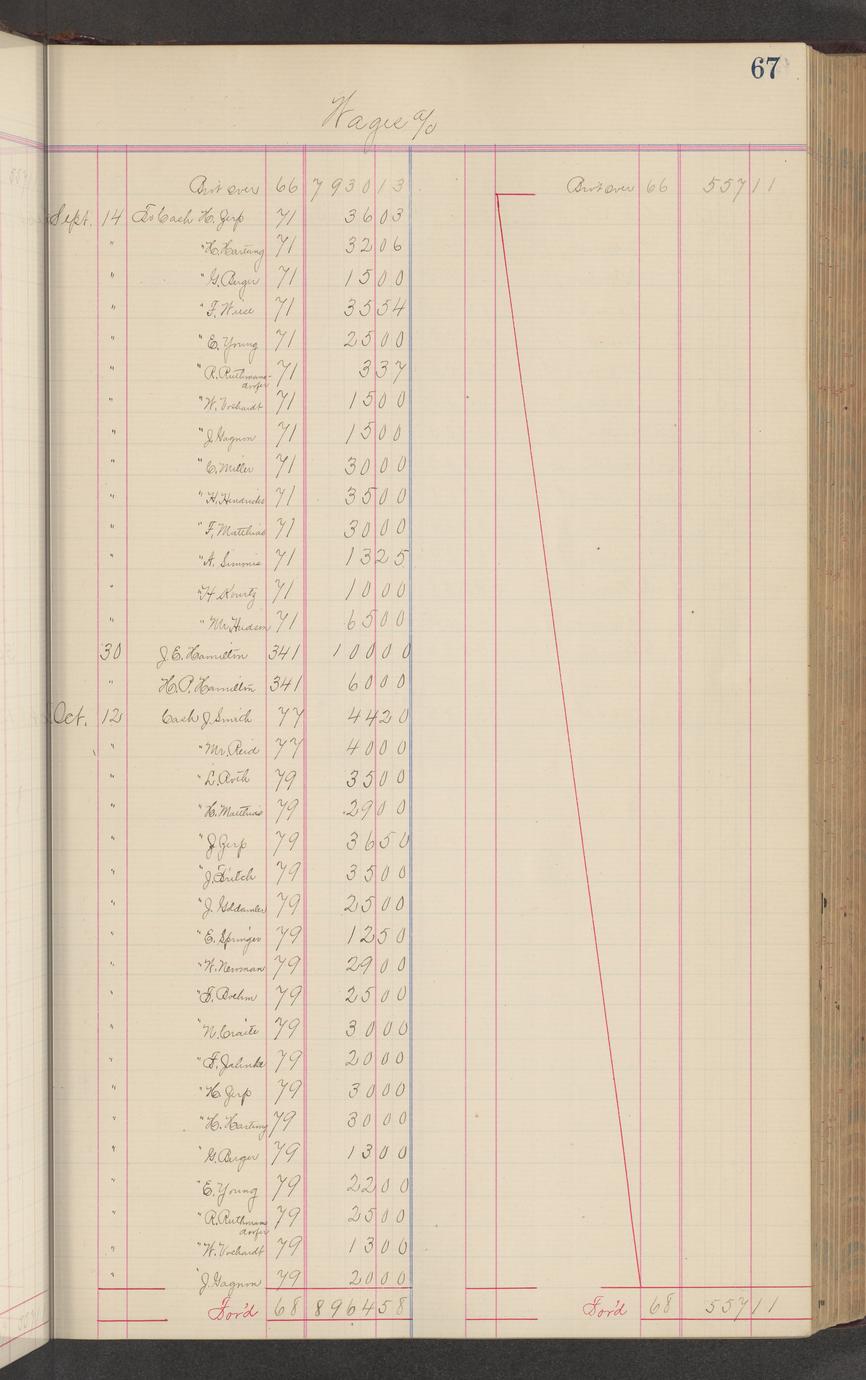 67
Wages a/c
Brot over 66 7930 13 Brot over 66 557 11
Sept. 14 To Cash H. Jerp 71 36 03
" " H. Hartung 71 32 06
" " G. Burger 71 15 00
" " F. Wiese 71 35 54
" " E. Young 71 25 00
" " R. Ruthmans-
dorfer 71 3 37
" " W. Vochardt 71 15 00
" " J. Gagnon 71 15 00
" " C. Miller 71 30 00
" " H. Hendricks 71 35 00
" " F. Matthias 71 30 00
" " A. Simmie 71 13 25
" " H Kourtz 71 10 00
" " Mr. Hudson 71 65 00
30 J. E. Hamilton 341 100 00
" H. P. Hamilton 341 60 00
Oct. 12 Cash J. Smich 77 44 20
" " Mr. Reid 77 40 00
" " L. Roth 79 35 00
" " H. Matthias 79 29 00
" " J. Jerp 79 36 50
" " J. Fritch 79 35 00
" " J. 79 25 00
" " E. Springer 79 12 50
" " W. Newman 79 29 00
" " F. Boehm 79 25 00
" " N. Craite 79 30 00
" " F. Jalinke 79 20 00
" " H. Jerp 79 30 00
" " H. Hartung 79 30 00
" " G. Burger 79 13 00
" " E. Young 79 22 00
" " R. Ruthmans
dorfer 79 25 00
" " W. Vochardt 79 13 00
" " J. Gagnon 79 20 00
For'd 68 8964 58 For'd 68 557 11